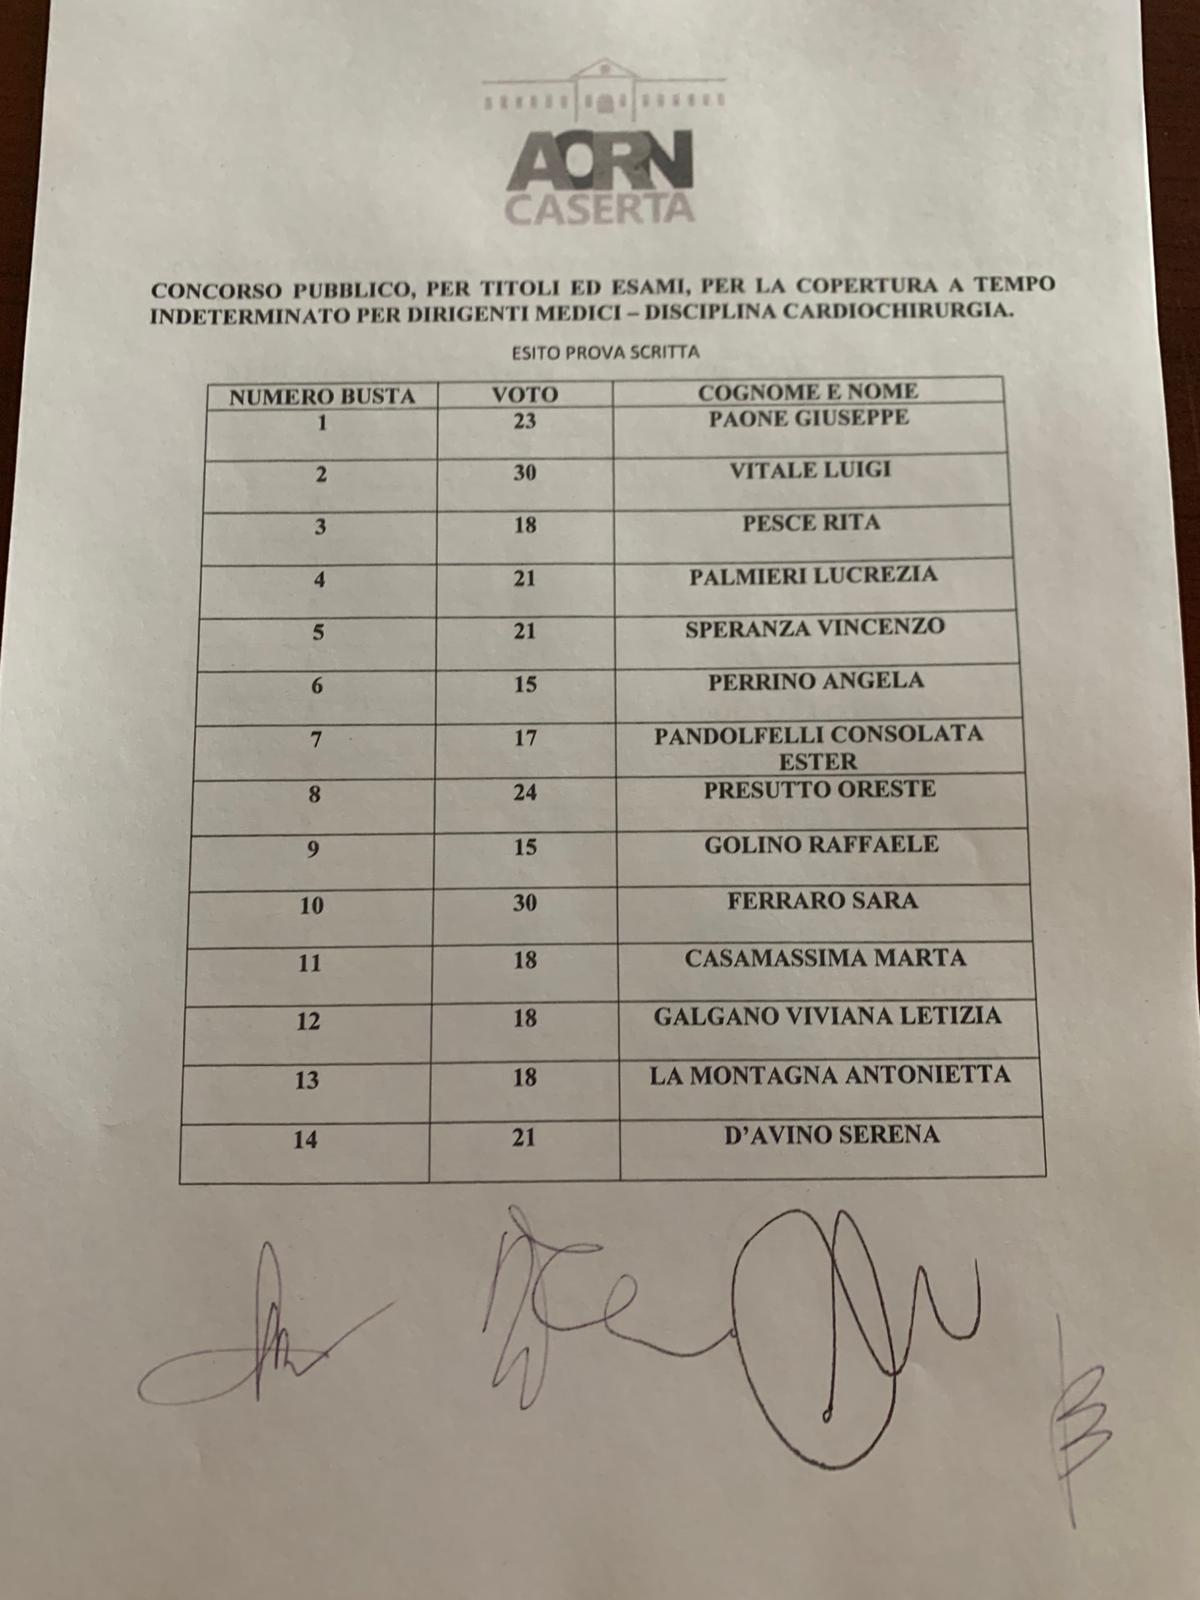 AORN
CASERTA
CONCORSO PUBBLICO, PER TITOLI ED ESAMI, PER LA COPERTURA A TEMPO
INDETERMINATO PER DIRIGENTI MEDICI – DISCIPLINA CARDIOCHIRURGIA.
ESITO PROVA SCRITTA
NUMERO BUSTA VOTO COGNOME E NOME
1 23 PAONE GIUSEPPE
2 30 VITALE LUIGI
3 18 PESCE RITA
4 21 PALMIERI LUCREZIA
5 21 SPERANZA VINCENZO
6 15 PERRINO ANGELA
7 17 PANDOLFELLI CONSOLATA
ESTER
8 24 PRESUTTO ORESTE
9 15 GOLINO RAFFAELE
10 30 FERRARO SARA
11 18 CASAMASSIMA MARTA
12 18 GALGANO VIVIANA LETIZIA
13 18 LA MONTAGNA ANTONIETTA
14 21 D'AVINO SERENA